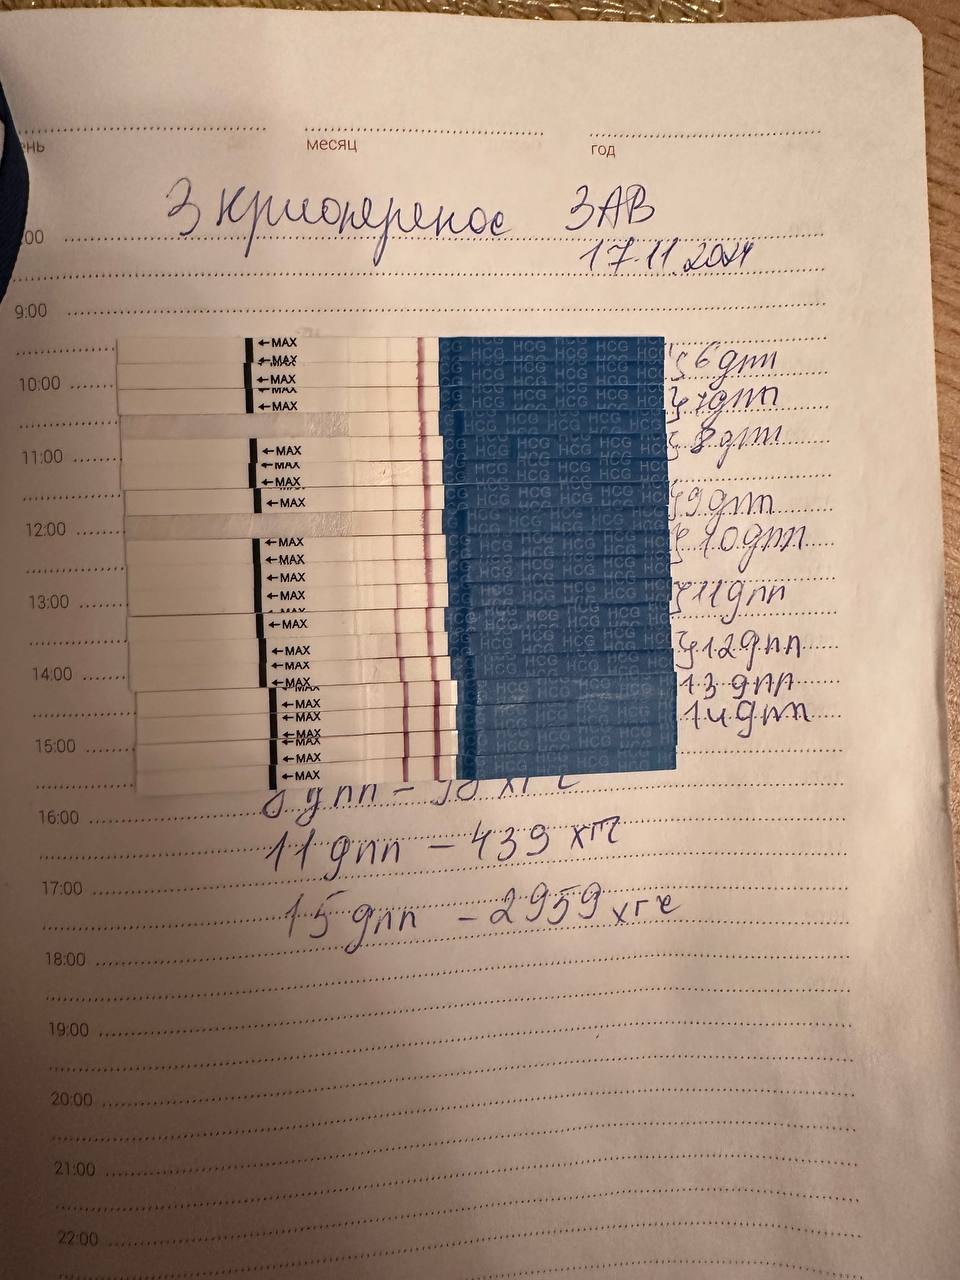 месяц
год
3 криоперенос 3АВ
17.11.2024
9:00
←MAX HCG HCG HCG HCG
6 дпп
10:00
←MAX
←MAX
7 дпп
8 дпп
11:00
←MAX
←MAX
←MAX
9 дпп
12:00
←MAX
10 дпп
←MAX
←MAX
13:00
←MAX
11 дпп
←MAX
←MAX
12 дпп
14:00
←MAX
←MAX
13 дпп
←MAX
14 дпп
←MAX
15:00
←MAX
←MAX
←MAX
16:00
11 дпп – 439 хгч
17:00
15 дпп – 2959 хгч
18:00
19:00
20:00
21:00
22:00